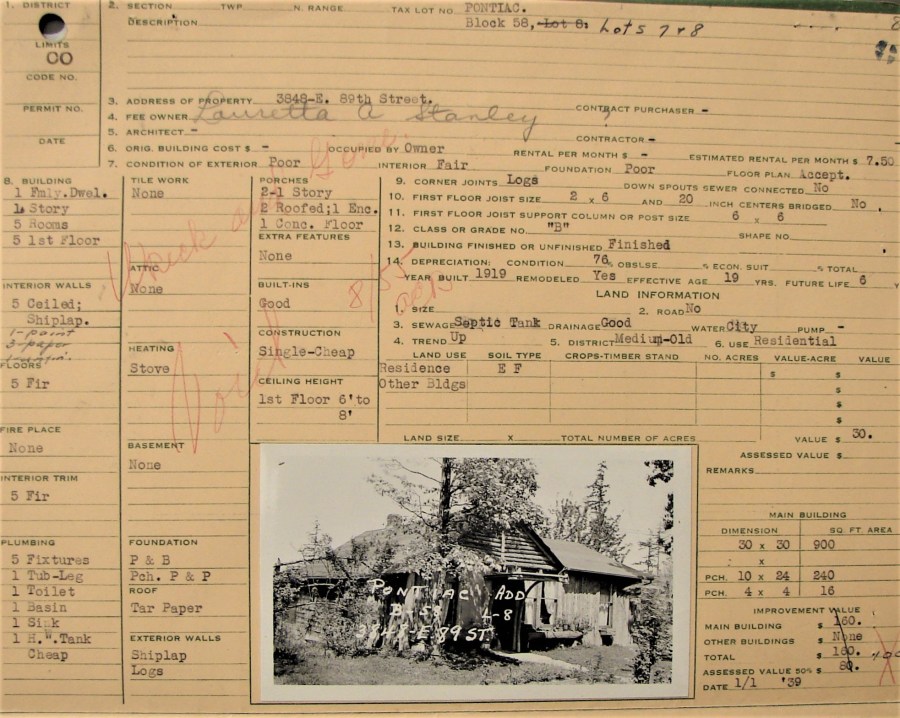 1. DISTRICT
LIMITS
OO
CODE NO.
PERMIT NO.
DATE
2. SECTION TWP. N. RANGE TAX LOT NO. PONTIAC.
DESCRIPTION Block 58, Lot 8. Lots 7 & 8
3. ADDRESS OF PROPERTY 3848-E. 89th Street.
4. FEE OWNER Lauretta A Stanley CONTRACT PURCHASER -
5. ARCHITECT - CONTRACTOR -
6. ORIG. BUILDING COST $ - OCCUPIED BY Owner RENTAL PER MONTH $ - ESTIMATED RENTAL PER MONTH $ 7.50
7. CONDITION OF EXTERIOR Poor INTERIOR Fair FOUNDATION Poor FLOOR PLAN Accept.
8. BUILDING
1 Fmly.Dwel.
1 Story
5 Rooms
5 1st Floor
INTERIOR WALLS
5 Ceiled;
Shiplap.
FLOORS
5 Fir
FIRE PLACE
None
INTERIOR TRIM
5 Fir
PLUMBING
5 Fixtures
1 Tub-Leg
1 Toilet
1 Basin
1 Sink
1 H.W. Tank
Cheap
TILE WORK
None
ATTIC
None
HEATING
Stove
BASEMENT
None
FOUNDATION
P & B
Pch. P & P
ROOF
Tar Paper
EXTERIOR WALLS
Shiplap
Logs
PORCHES
2-1 Story
2 Roofed;1 Enc.
1 Conc. Floor
EXTRA FEATURES
None
BUILT-INS
Good
CONSTRUCTION
Single-Cheap
CEILING HEIGHT
1st Floor 6' to
8'
Void
8/55
9. CORNER JOINTS Logs DOWN SPOUTS SEWER CONNECTED No
10. FIRST FLOOR JOIST SIZE 2 x 6 AND 20 INCH CENTERS BRIDGED No
11. FIRST FLOOR JOIST SUPPORT COLUMN OR POST SIZE 6 x 6
12. CLASS OR GRADE NO. "B" SHAPE NO.
13. BUILDING FINISHED OR UNFINISHED Finished
14. DEPRECIATION: CONDITION 76% OBSLSE. % ECON. SUIT % TOTAL
YEAR BUILT 1919 REMODELED Yes EFFECTIVE AGE 19 YRS. FUTURE LIFE 6
LAND INFORMATION
1. SIZE 2. ROAD No
3. SEWAGE Septic Tank DRAINAGE Good WATER City PUMP -
4. TREND Up 5. DISTRICT Medium-Old 6. USE Residential
LAND USE SOIL TYPE CROPS-TIMBER STAND NO. ACRES VALUE-ACRE VALUE
Residence E F $ $
Other Bldgs $
$
$
LAND SIZE x TOTAL NUMBER OF ACRES VALUE $ 30.
ASSESSED VALUE $
REMARKS
PONTIAC ADD
B-58 L-8
3848-E 89 ST
MAIN BUILDING
DIMENSION SQ. FT. AREA
30 x 30 900
x
PCH. 10 x 24 240
PCH. 4 x 4 16
IMPROVEMENT VALUE
MAIN BUILDING $ 160.
OTHER BUILDINGS $ None
TOTAL $ 160.
ASSESSED VALUE 50% $ 80.
DATE 1/1 '39